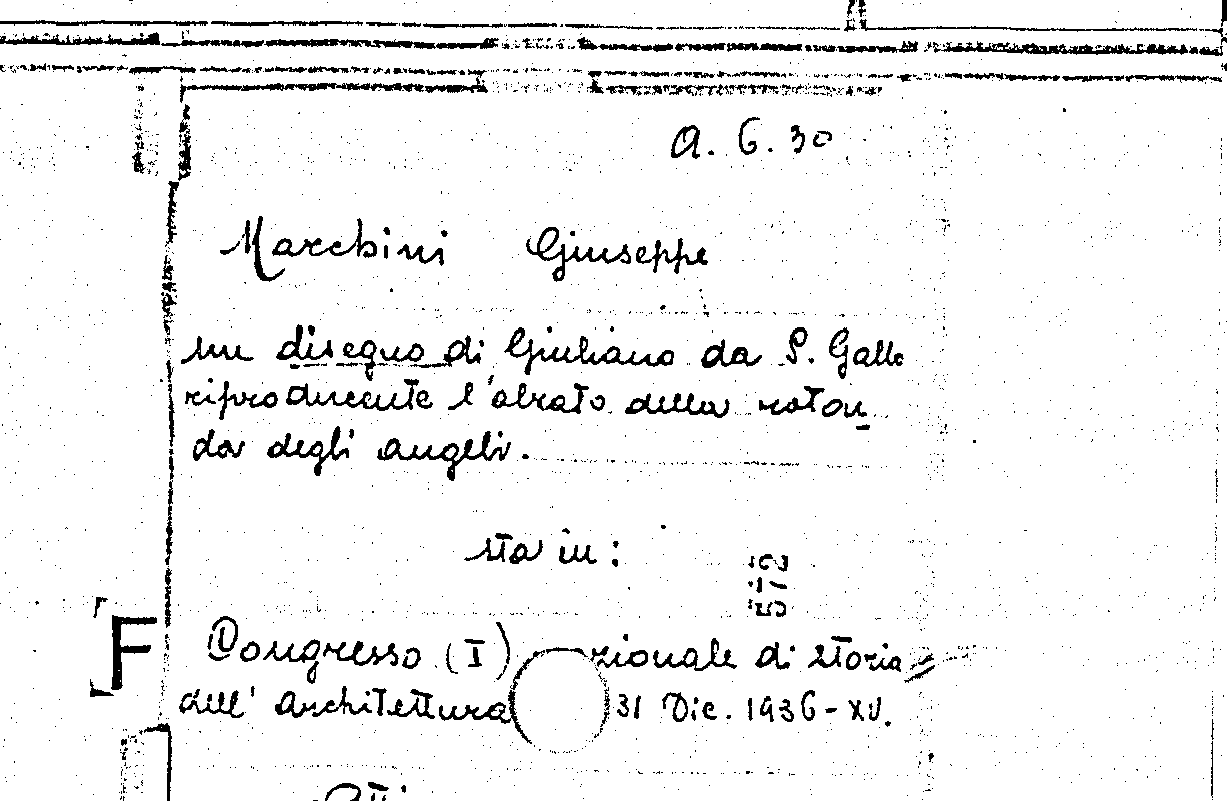 A. 6. 30
Marchini Giuseppe
un disegno di Giuliano da S. Gallo
riproducente l'alzato della roton
da degli angeli.
sta in:
572
F
Congresso (I) zionale di storia
dell'architettura 31 Dic. 1936-XV.